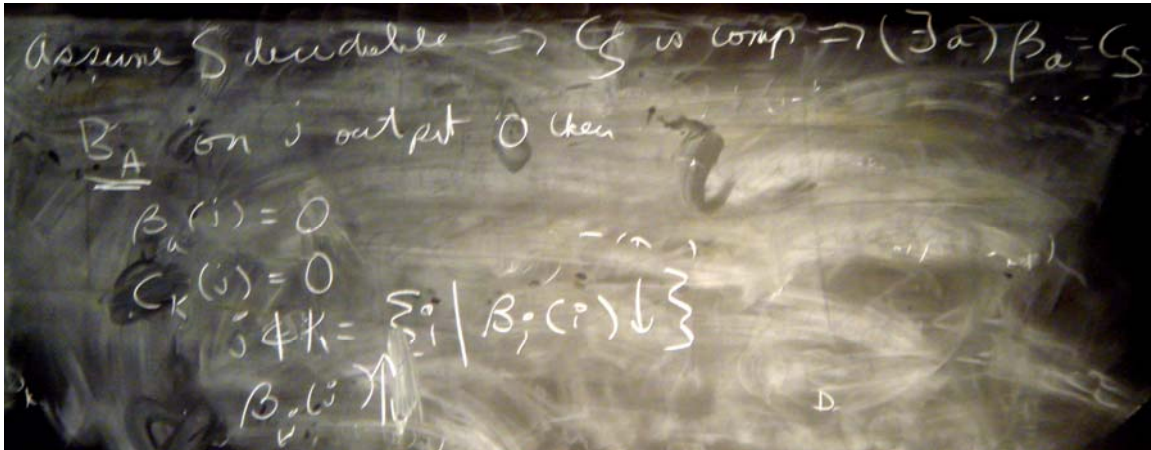 Assume S decidable => C_S is comp => (∃a) β_a = C_S
B_A on j output 0 then
β_a(j) = 0
C_K(j) = 0
j ∉ K = {i | β_i(i)↓}
β_j(j)↑
D